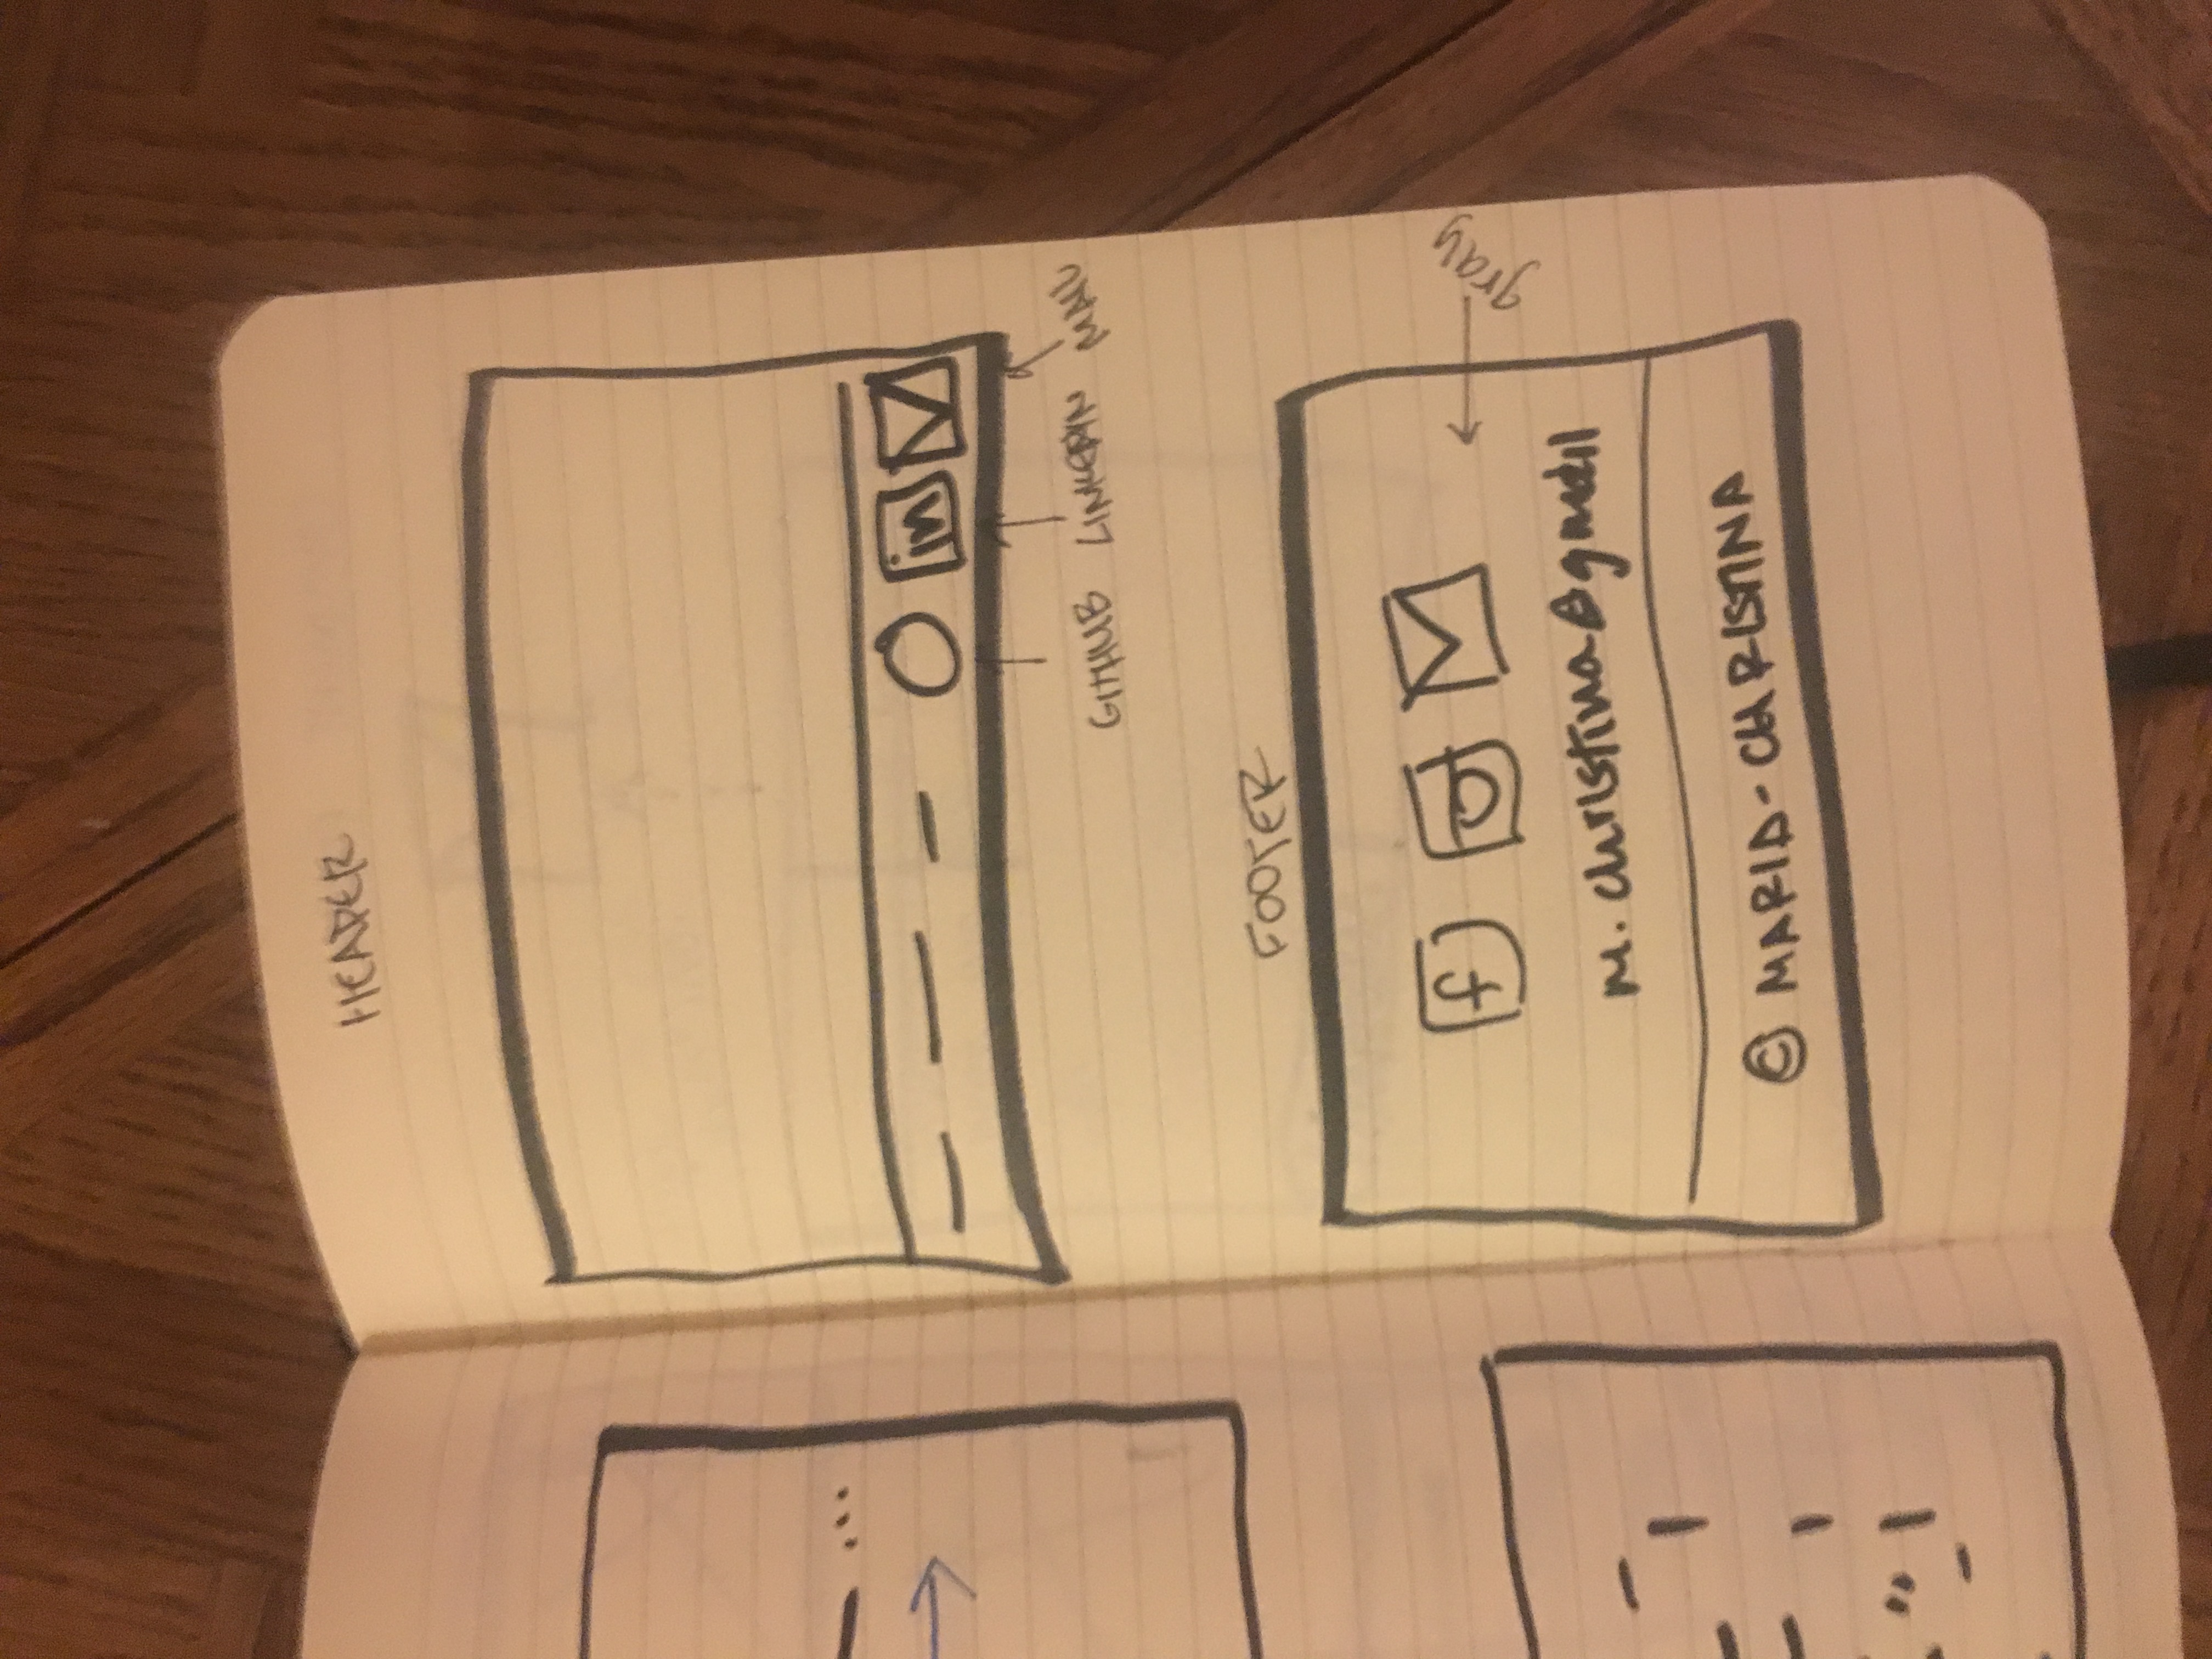 HEADER
in
GITHUB LINKEDIN MAIL
FOOTER
f
gray
m.christina@gmail
© MARIA-CHRISTINA